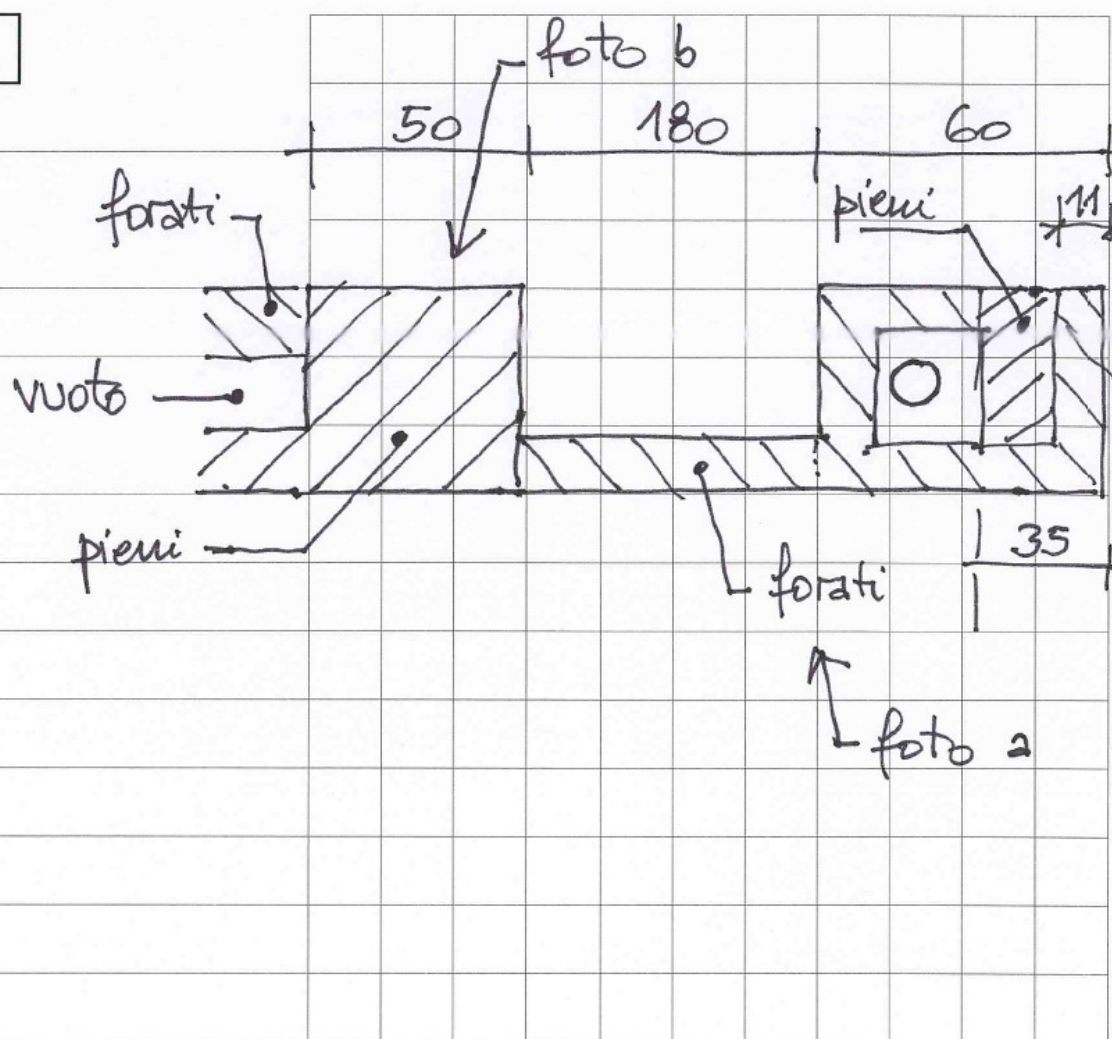 foto b
50 180 60
forati
pieni
11
vuoto
pieni
35
forati
foto a